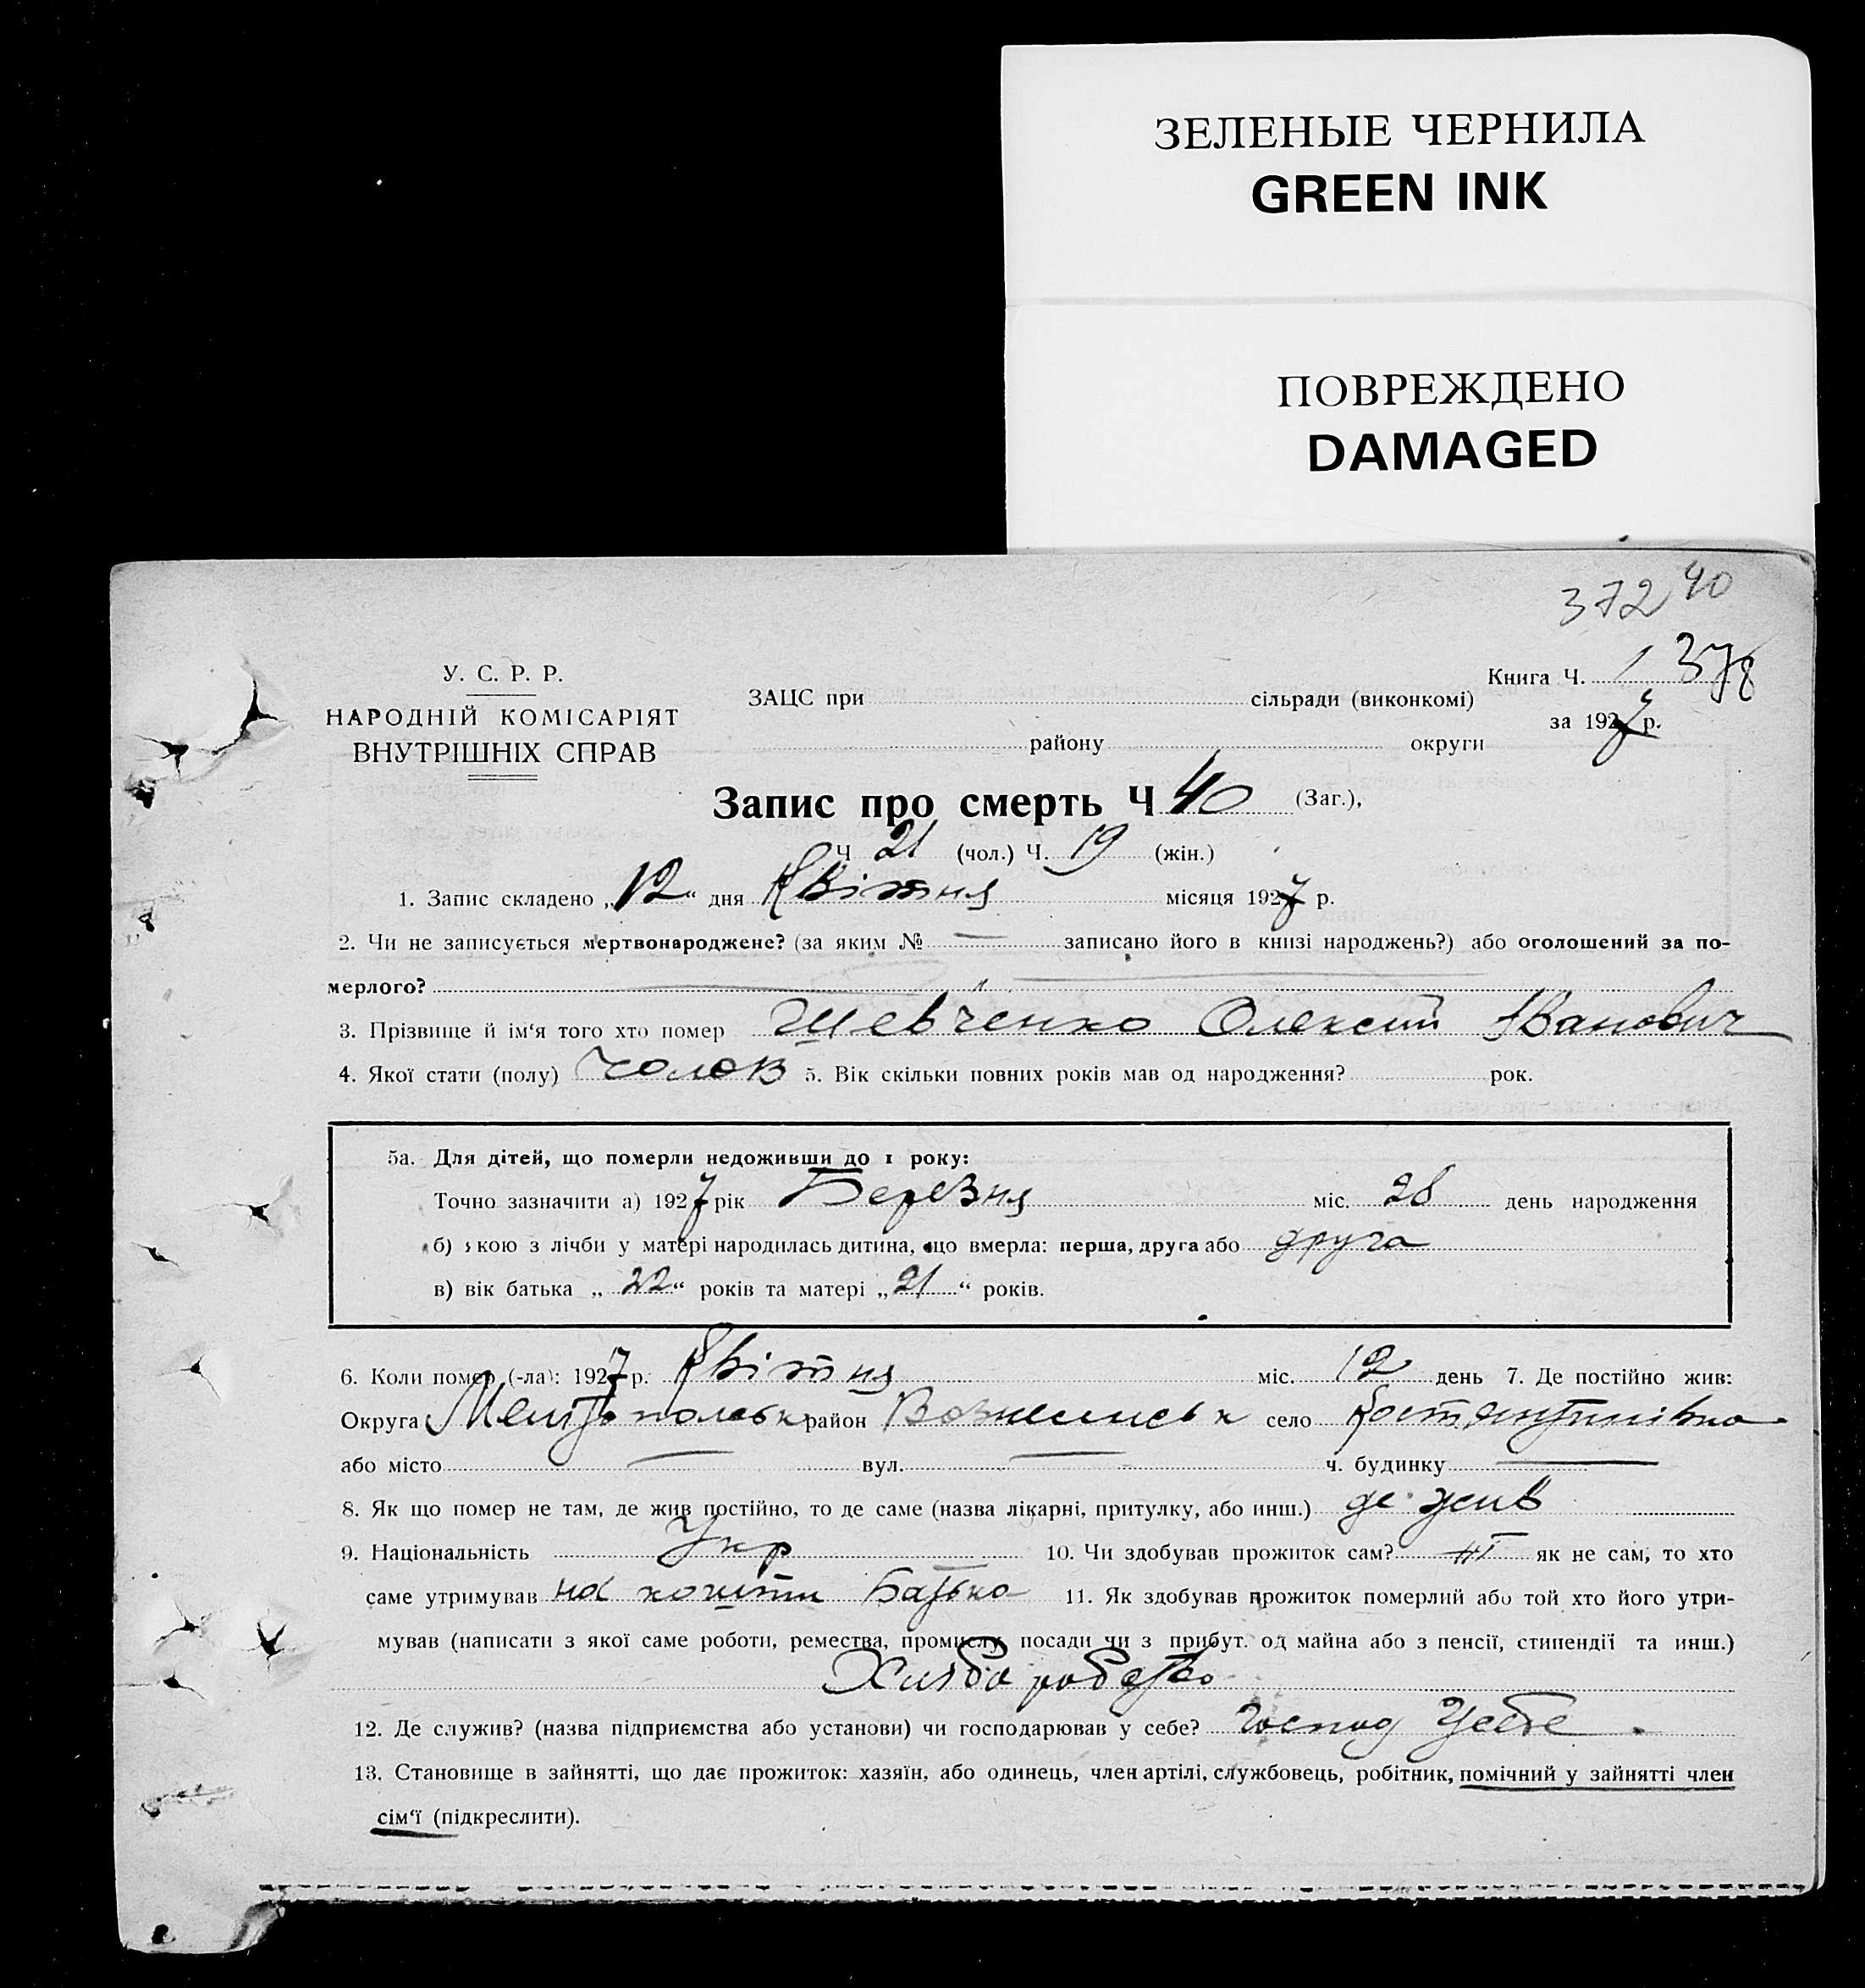 ЗЕЛЕНЫЕ ЧЕРНИЛА
GREEN INK
ПОВРЕЖДЕНО
DAMAGED
372 40
У. С. Р. Р.
НАРОДНІЙ КОМІСАРІЯТ
ВНУТРІШНІХ СПРАВ
Книга Ч. 1 378
ЗАЦС при сільради (виконкомі)
за 1927 р.
району округи
Запис про смерть Ч 40 (Заг.),
Ч 21 (чол.) Ч. 19 (жін.)
1. Запис складено „12“ дня Квітня місяця 1927 р.
2. Чи не записується мертвонароджене? (за яким № — записано його в книзі народжень?) або оголошений за по-
мерлого?
3. Прізвище й ім‘я того хто помер Шевченко Олексій Іванович
4. Якої стати (полу) Чолов 5. Вік скільки повних років мав од народження? рок.
5а. Для дітей, що померли недоживши до 1 року:
Точно зазначити а) 1927 рік Березня міс. 28 день народження
б) якою з лічби у матері народилась дитина, що вмерла: перша, друга або друга
в) вік батька „22“ років та матері „21“ років.
6. Коли помер (-ла): 1927 р. Квітня міс. 12 день 7. Де постійно жив:
Округа Мелітопольськ район Вознесенськ село Костянтинівка
або місто — вул. — ч. будинку —
8. Як що помер не там, де жив постійно, то де саме (назва лікарні, притулку, або инш.) де жив
9. Національність Укр 10. Чи здобував прожиток сам? ні як не сам, то хто
саме утримував на кошти Батька 11. Як здобував прожиток померлий або той хто його утри-
мував (написати з якої саме роботи, ремества, промислу, посади чи з прибут. од майна або з пенсії, стипендії та инш.)
Хлібо робство
12. Де служив? (назва підприємства або установи) чи господарював у себе? Господ Усебе
13. Становище в зайнятті, що дає прожиток: хазяїн, або одинець, член артілі, службовець, робітник, помічний у зайнятті член
сім‘ї (підкреслити).